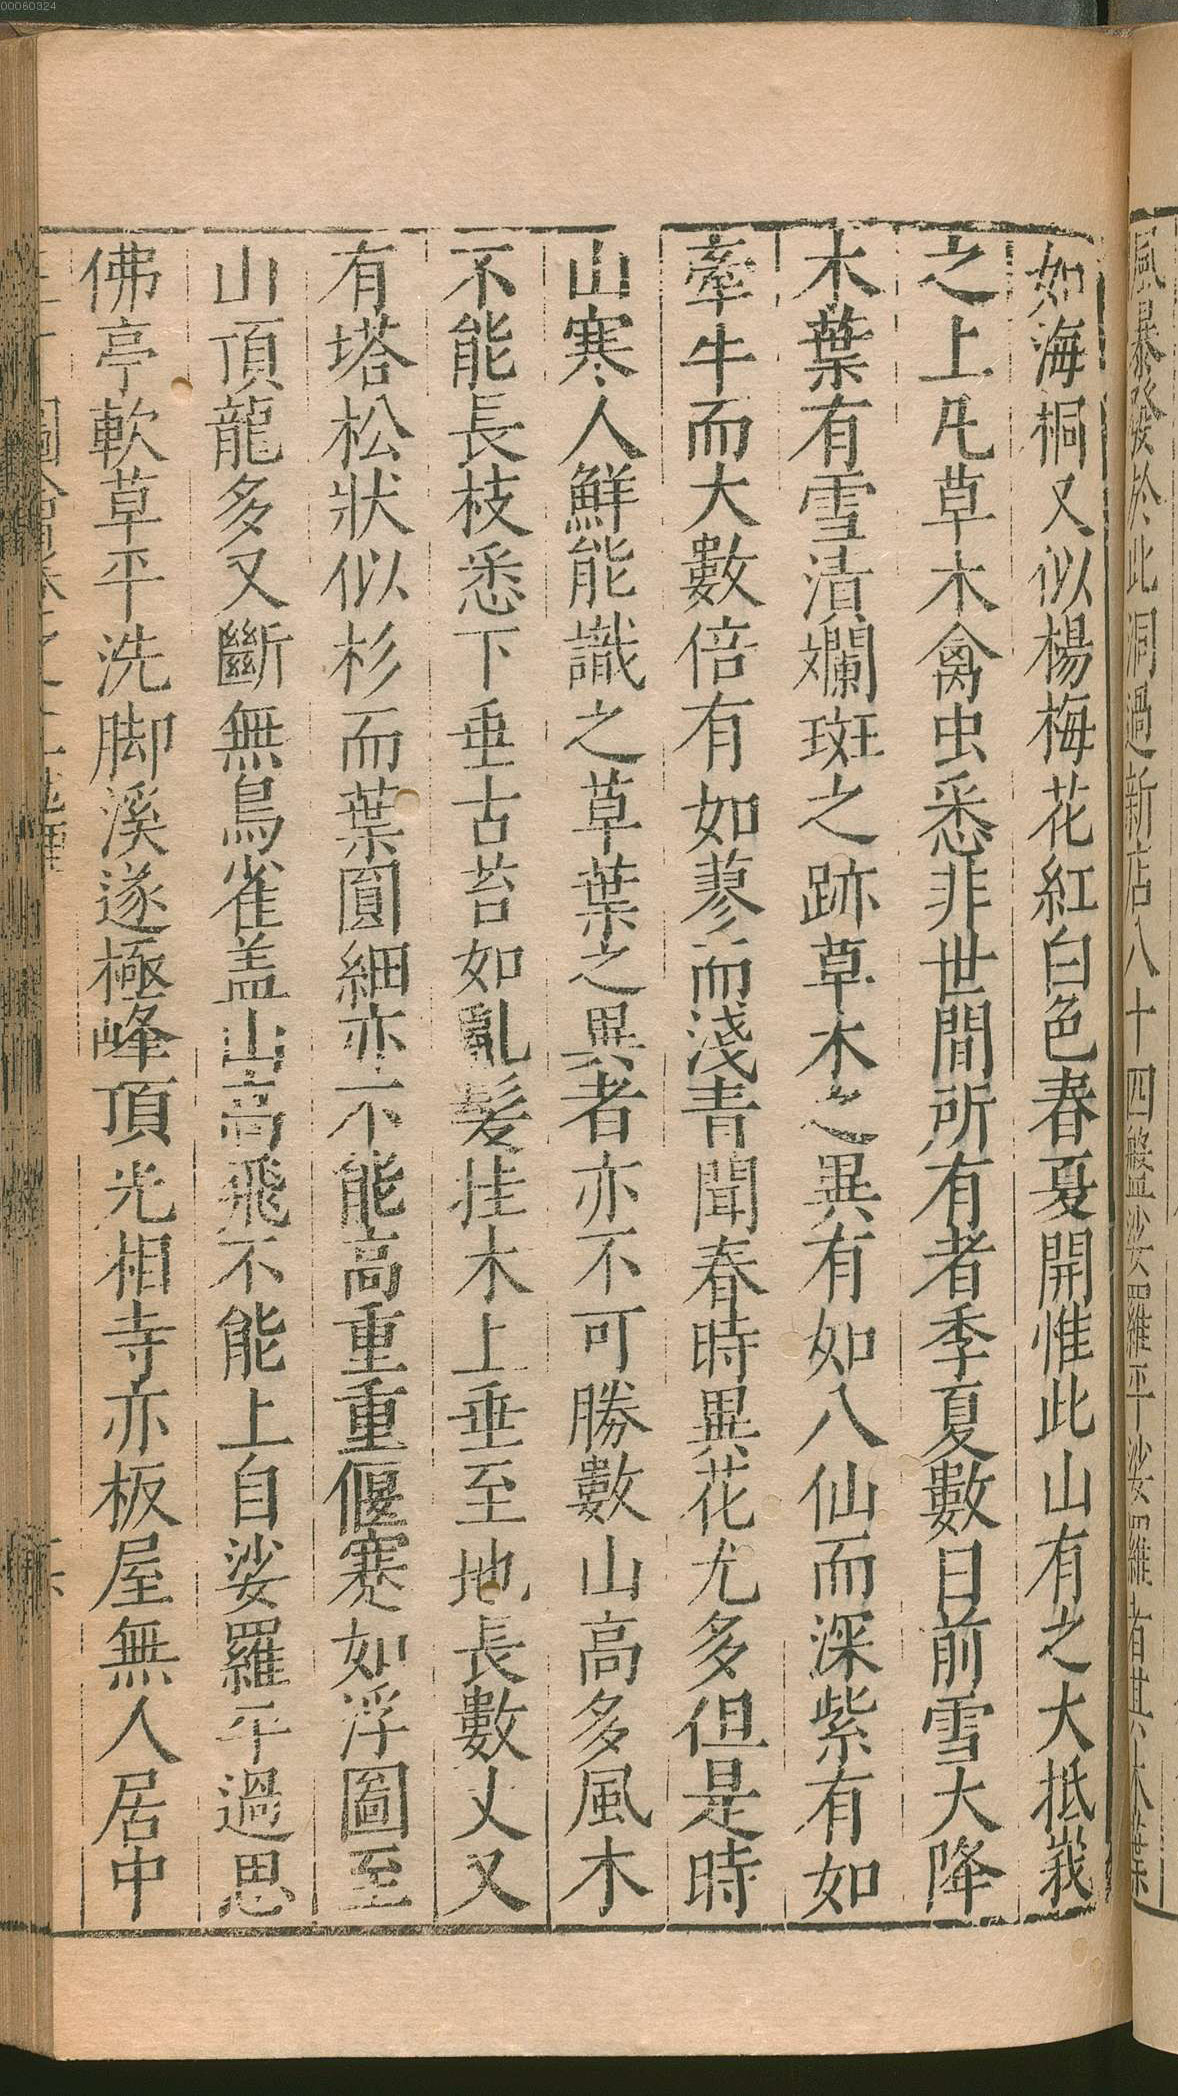 00060324
風暴發於此洞過新店八十四盤娑羅平娑羅者其木葉
如海桐又似楊梅花紅白色春夏開惟此山有之大抵峩
之上凡草木禽虫悉非世間所有者季夏數日前雪大降
木葉有雪漬斕斑之跡草木之異有如八仙而深紫有如
牽牛而大數倍有如蓼而淺青聞春時異花尤多但是時
山寒人鮮能識之草葉之異者亦不可勝數山高多風木
不能長枝悉下垂古苔如亂髮挂木上垂至地長數丈又
有塔松狀似杉而葉圓細亦不能高重重偃蹇如浮圖至
山頂龍多又斷無鳥雀盖山高飛不能上自娑羅平過思
佛亭軟草平洗脚溪遂極峰頂光相寺亦板屋無人居中